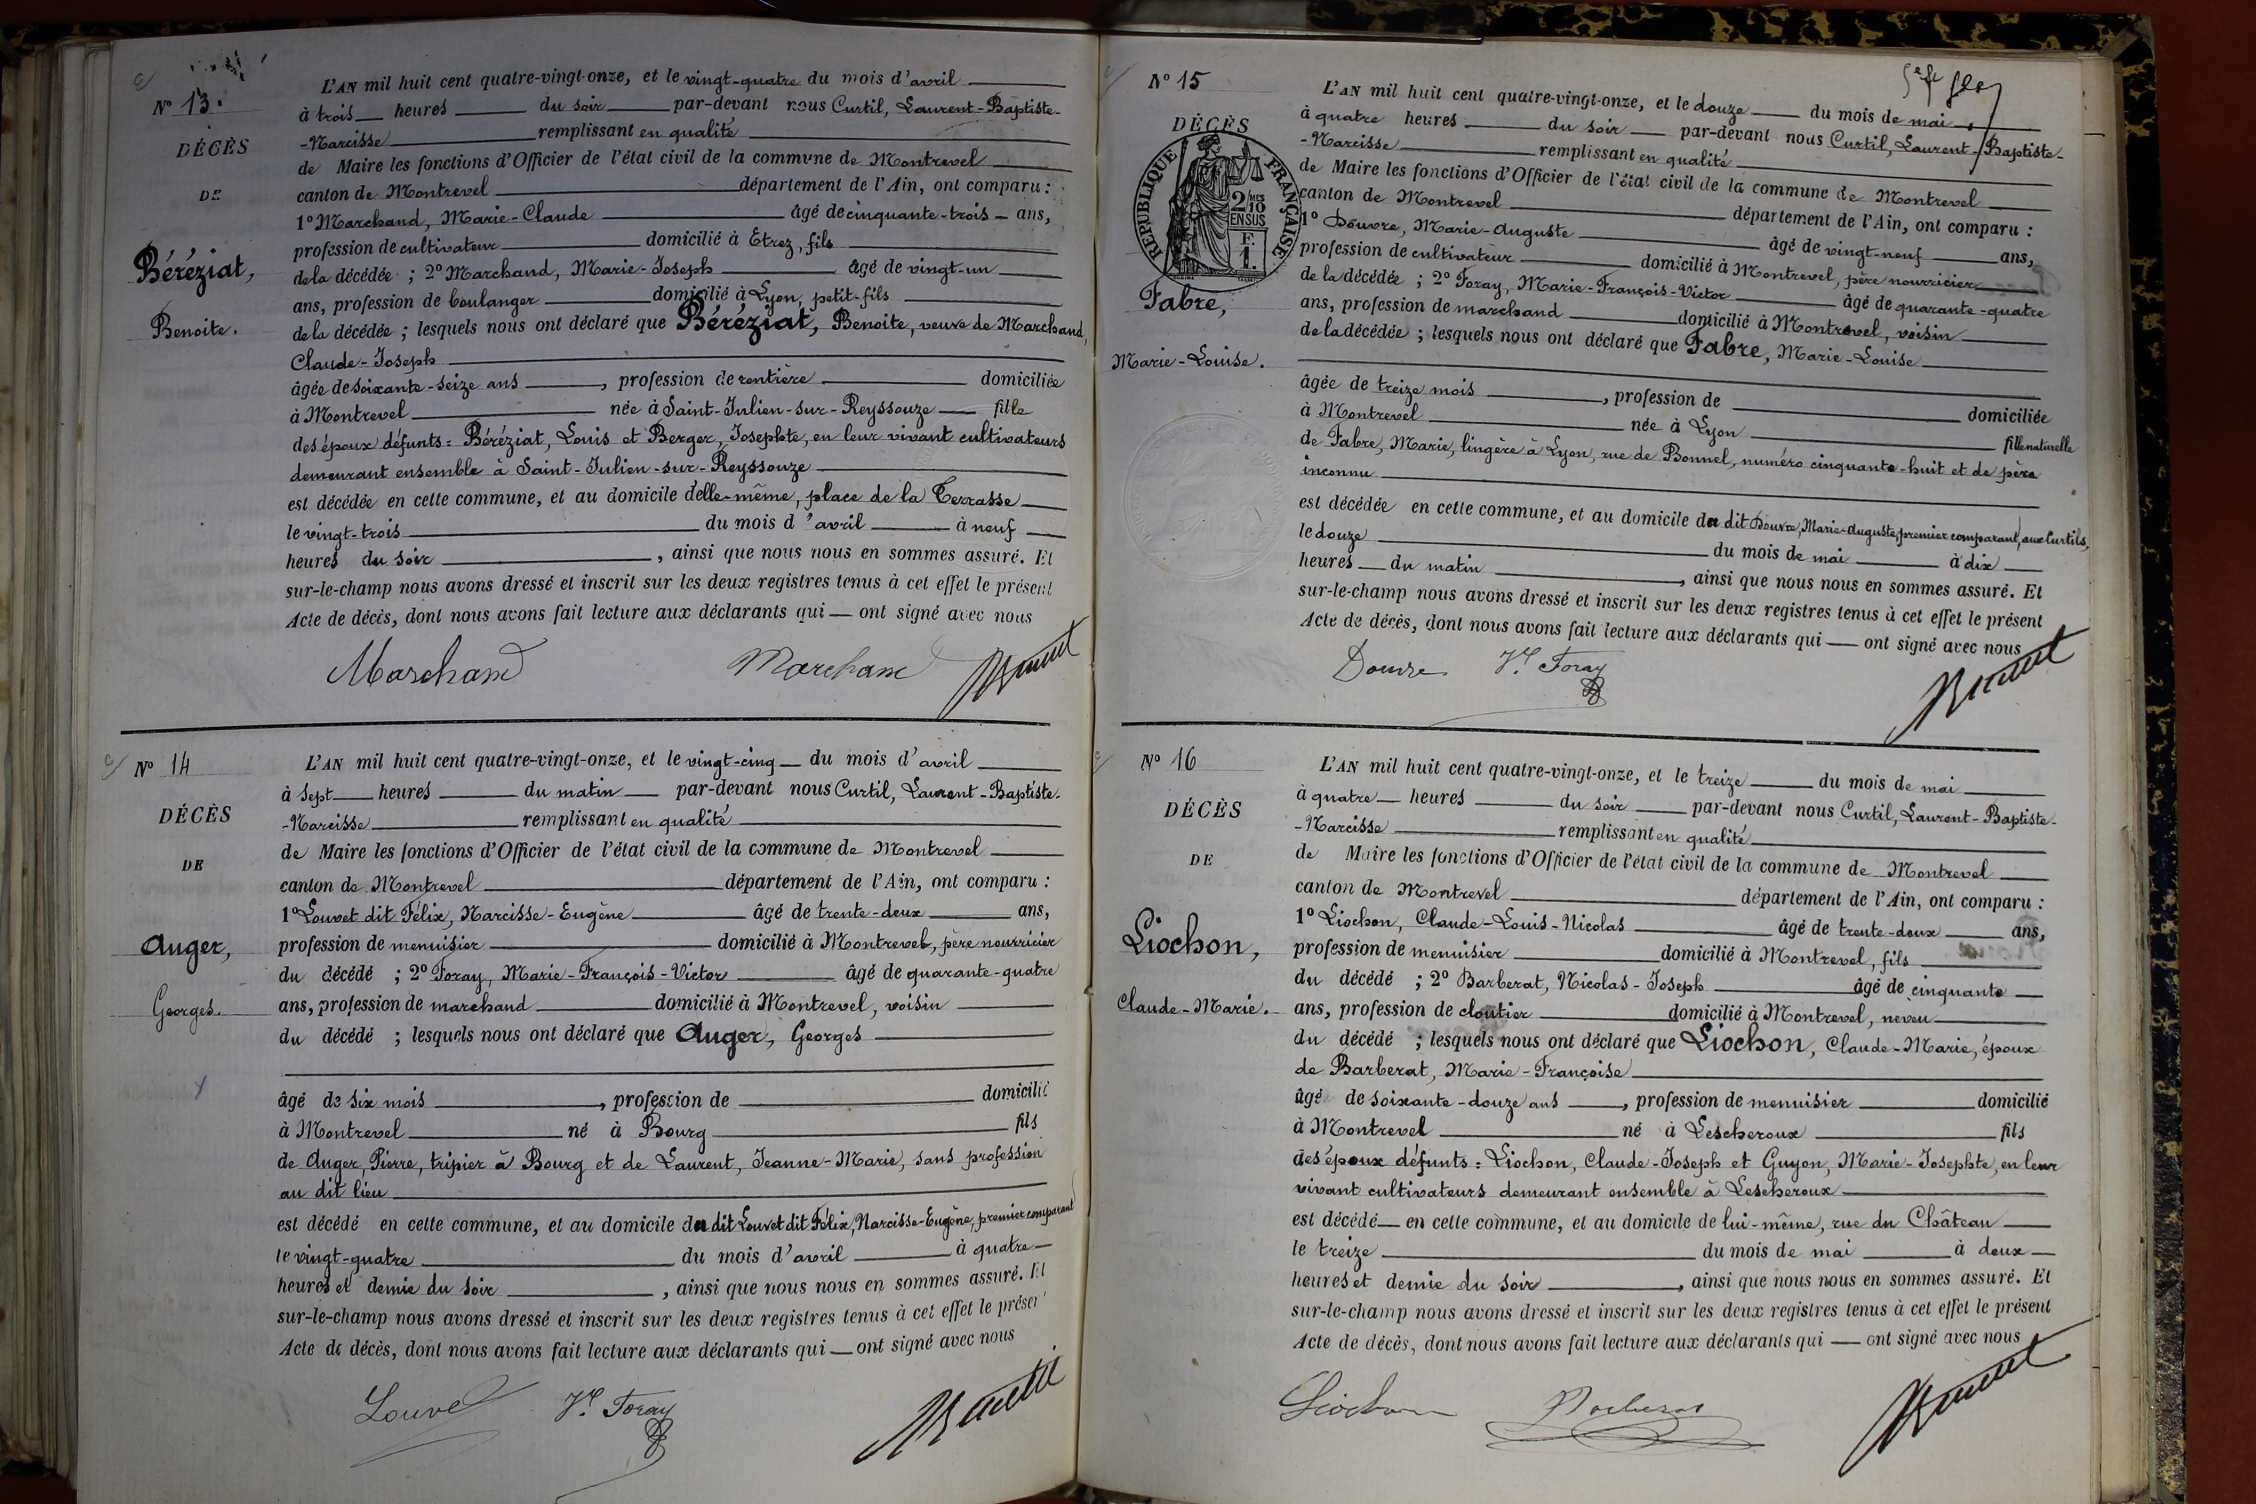 N° 13.
DÉCÈS
DE
Béréziat,
Benoite.
L'AN mil huit cent quatre-vingt-onze, et le vingt-quatre du mois d'avril
à trois heures du soir par-devant nous Curtil, Laurent-Baptiste-
-Narcisse remplissant en qualité
de Maire les fonctions d'Officier de l'état civil de la commune de Montrevel
canton de Montrevel département de l'Ain, ont comparu :
1° Marchand, Marie-Claude âgé de cinquante-trois ans,
profession de cultivateur domicilié à Etrez, fils
de la décédée ; 2° Marchand, Marie-Joseph âgé de vingt-un
ans, profession de boulanger domicilié à Lyon, petit-fils
de la décédée ; lesquels nous ont déclaré que Béréziat, Benoite, veuve de Marchand,
Claude-Joseph
âgée de soixante-seize ans , profession de rentière domiciliée
à Montrevel née à Saint-Julien-sur-Reyssouze fille
des époux défunts : Béréziat, Louis et Berger, Josephte, en leur vivant cultivateurs
demeurant ensemble à Saint-Julien-sur-Reyssouze
est décédée en cette commune, et au domicile d'elle-même, place de la Terrasse
le vingt-trois du mois d'avril à neuf
heures du soir , ainsi que nous nous en sommes assuré. Et
sur-le-champ nous avons dressé et inscrit sur les deux registres tenus à cet effet le présent
Acte de décès, dont nous avons fait lecture aux déclarants qui ont signé avec nous
Marchand Marchand
N° 14
DÉCÈS
DE
Auger,
Georges.
L'AN mil huit cent quatre-vingt-onze, et le vingt-cinq du mois d'avril
à sept heures du matin par-devant nous Curtil, Laurent-Baptiste-
-Narcisse remplissant en qualité
de Maire les fonctions d'Officier de l'état civil de la commune de Montrevel
canton de Montrevel département de l'Ain, ont comparu :
1° Louvet dit Félix, Narcisse-Eugène âgé de trente-deux ans,
profession de menuisier domicilié à Montrevel, père nourricier
du décédé ; 2° Foray, Marie-François-Victor âgé de quarante-quatre
ans, profession de marchand domicilié à Montrevel, voisin
du décédé ; lesquels nous ont déclaré que Auger, Georges
âgé de six mois , profession de domicilié
à Montrevel né à Bourg fils
de Auger, Pierre, tripier à Bourg et de Laurent, Jeanne-Marie, sans profession
au dit lieu
est décédé en cette commune, et au domicile du dit Louvet dit Félix, Narcisse-Eugène, premier comparant
le vingt-quatre du mois d'avril à quatre
heures et demie du soir , ainsi que nous nous en sommes assuré. Et
sur-le-champ nous avons dressé et inscrit sur les deux registres tenus à cet effet le présent
Acte de décès, dont nous avons fait lecture aux déclarants qui ont signé avec nous
Louvet Vr Foray
N° 15
DÉCÈS
RÉPUBLIQUE FRANÇAISE
2/10 MES
EN SUS
F.
1.
Fabre,
Marie-Louise.
L'AN mil huit cent quatre-vingt-onze, et le douze du mois de mai
à quatre heures du soir par-devant nous Curtil, Laurent-Baptiste-
-Narcisse remplissant en qualité
de Maire les fonctions d'Officier de l'état civil de la commune de Montrevel
canton de Montrevel département de l'Ain, ont comparu :
1° Douvre, Marie-Auguste âgé de vingt-neuf ans,
profession de cultivateur domicilié à Montrevel, père nourricier
de la décédée ; 2° Foray, Marie-François-Victor âgé de quarante-quatre
ans, profession de marchand domicilié à Montrevel, voisin
de la décédée ; lesquels nous ont déclaré que Fabre, Marie-Louise
âgée de treize mois , profession de domiciliée
à Montrevel née à Lyon fille naturelle
de Fabre, Marie, lingère à Lyon, rue de Bonnel, numéro cinquante-huit et de père
inconnu
est décédée en cette commune, et au domicile du dit Douvre, Marie-Auguste, premier comparant, aux Curtils,
le douze du mois de mai à dix
heures du matin , ainsi que nous nous en sommes assuré. Et
sur-le-champ nous avons dressé et inscrit sur les deux registres tenus à cet effet le présent
Acte de décès, dont nous avons fait lecture aux déclarants qui ont signé avec nous
Douvre Vr Foray
N° 16
DÉCÈS
DE
Liochon,
Claude-Marie.
L'AN mil huit cent quatre-vingt-onze, et le treize du mois de mai
à quatre heures du soir par-devant nous Curtil, Laurent-Baptiste-
-Narcisse remplissant en qualité
de Maire les fonctions d'Officier de l'état civil de la commune de Montrevel
canton de Montrevel département de l'Ain, ont comparu :
1° Liochon, Claude-Louis-Nicolas âgé de trente-deux ans,
profession de menuisier domicilié à Montrevel, fils
du décédé ; 2° Barberat, Nicolas-Joseph âgé de cinquante
ans, profession de cloutier domicilié à Montrevel, neveu
du décédé ; lesquels nous ont déclaré que Liochon, Claude-Marie, époux
de Barberat, Marie-Françoise
âgé de soixante-douze ans , profession de menuisier domicilié
à Montrevel né à Lescheroux fils
des époux défunts : Liochon, Claude-Joseph et Guyon, Marie-Josephte, en leur
vivant cultivateurs demeurant ensemble à Lescheroux
est décédé en cette commune, et au domicile de lui-même, rue du Château
le treize du mois de mai à deux
heures et demie du soir , ainsi que nous nous en sommes assuré. Et
sur-le-champ nous avons dressé et inscrit sur les deux registres tenus à cet effet le présent
Acte de décès, dont nous avons fait lecture aux déclarants qui ont signé avec nous
Liochon Barberat